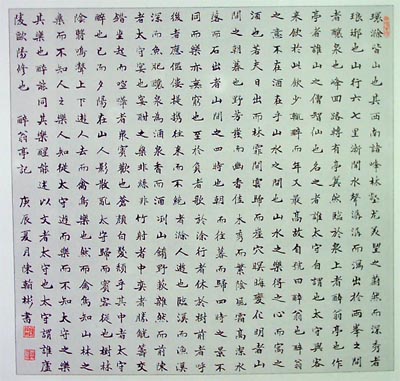 環滁皆山也其西南諸峰林壑尤美望之蔚然而深秀者
瑯琊也山行六七里漸聞水聲潺潺而瀉出於兩峯之間
者釀泉也峰回路轉有亭翼然臨於泉上者醉翁亭也作
亭者誰山之僧智仙也名之者誰太守自謂也太守與客
來飲於此飲少輒醉而年又最高故自號曰醉翁也醉翁
之意不在酒在乎山水之間也山水之樂得之心而寓之
酒也若夫日出而林霏開雲歸而巖穴暝晦變化明者山
間之朝暮也野芳發而幽香佳木秀而繁陰風霜高潔水
落而石出者山間之四時也朝而往暮而歸四時之景不
同而樂亦無窮也至於負者歌於塗行者休於樹前者呼
後者應傴僂提攜往來而不絕者滁人遊也臨溪而漁溪
深而魚肥釀泉為酒泉香而酒洌山肴野蔌雜然而前陳
者太守宴也宴酣之樂非絲非竹射者中奕者勝觥籌交
錯坐起而諠譁者衆賓歡也蒼顏白髮頹乎其中者太守
醉也已而夕陽在山人影散亂太守歸而賓客從也樹林
陰翳鳴聲上下遊人去而禽鳥樂也然而禽鳥知山林之
樂而不知人之樂人知從太守遊而樂而不知太守之樂
其樂也醉能同其樂醒能述以文者太守也太守謂誰廬
陵歐陽修也 醉翁亭記 庚辰夏月陳翰彬書